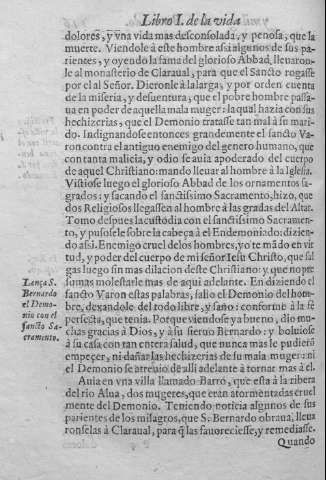 Libro I. de la vida
dolores, y vna vida mas desconsolada, y penosa, que la
muerte. Viendole a este hombre asi algunos de sus pa-
rientes, y oyendo la fama del glorioso Abbad, lleuaron-
le al monasterio de Claraual, para que el Sancto rogasse
por el al Señor. Dieronle à la larga, y por orden cuenta
de la miseria, y desuentura, que el pobre hombre passa-
ua en poder de aquella mala muger: la qual hazia con sus
hechizerias, que el Demonio tratasse tan mal à su mari-
do. Indignandose entonces grandemente el sancto Va-
ron contra el antiguo enemigo del genero humano, que
con tanta malicia, y odio se auia apoderado del cuerpo
de aquel Christiano: mando lleuar al hombre à la Iglesia.
Vistiose luego el glorioso Abbad de los ornamentos sa-
grados: y sacando el sanctissimo Sacramento, hizo, que
dos Religiosos llegassen al hombre à las gradas del Altar.
Tomo despues la custodia con el sanctissimo Sacramen-
to, y pusosele sobre la cabeça à el Endemoniado: dizien-
do assi. Enemigo cruel de los hombres, yo te mãdo en vir
tud, y poder del cuerpo de mi señor Iesu Christo, que sal
gas luego sin mas dilacion deste Christiano: y que no pre
sumas molestarle mas de aqui adelante. En diziendo el
sancto Varon estas palabras, salio el Demonio del hom-
bre, dexandole del todo libre, y sano: conforme à la fè
perfecta, que tenia. Porque viendose ya bueno, dio mu-
chas gracias à Dios, y à su sieruo Bernardo: y boluiose
à su casa con tan entera salud, que nunca mas le pudierõ
empeçer, ni dañar las hechizerias de su mala muger: ni
el Demonio se atreuio de alli adelante à tornar mas à el.
Lança S.
Bernardo
el Demo-
nio con el
sancto Sa-
cramento.
Auia en vna villa llamado Barro, que està à la ribera
del rio Alua, dos mugeres, que eran atormentadas cruel
mente del Demonio. Teniendo noticia algunos de sus
parientes de los milagros, que S. Bernardo obraua, lleua
ronselas à Claraual, para q̃ las fauoreciesse, y remediasse.
Quando